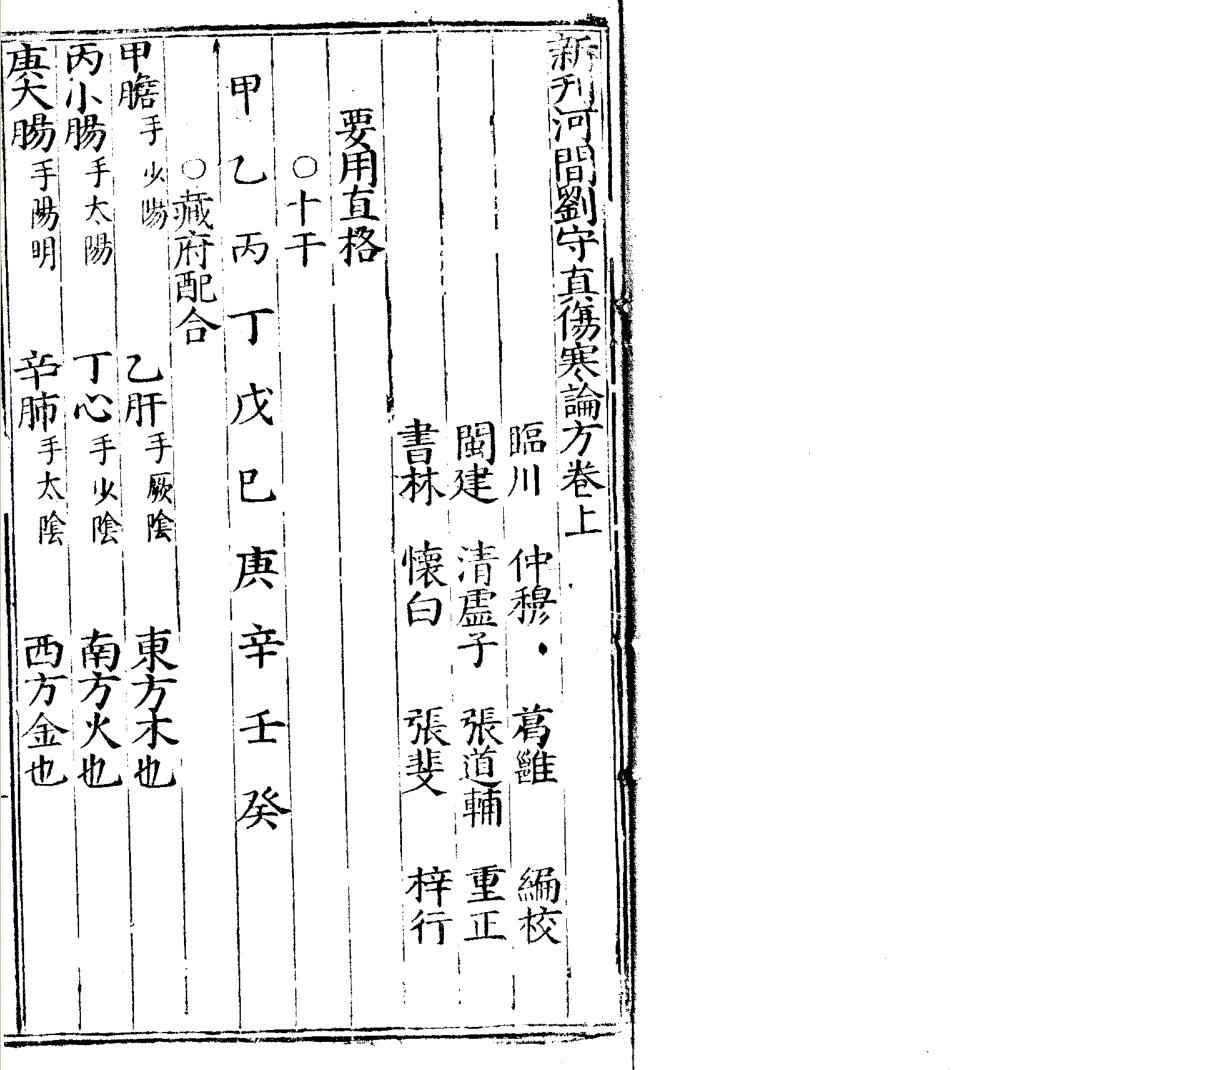 新刊河間劉守真傷寒論方卷上
臨川 仲穆・ 葛雝 編校
閩建 清虛子 張道輔 重正
書林 懷白 張斐 梓行
要用直格
○十干
甲 乙 丙 丁 戊 巳 庚 辛 壬 癸
○藏府配合
甲膽手少陽 乙肝手厥陰 東方木也
丙小腸手太陽 丁心手少陰 南方火也
庚大腸手陽明 辛肺手太陰 西方金也